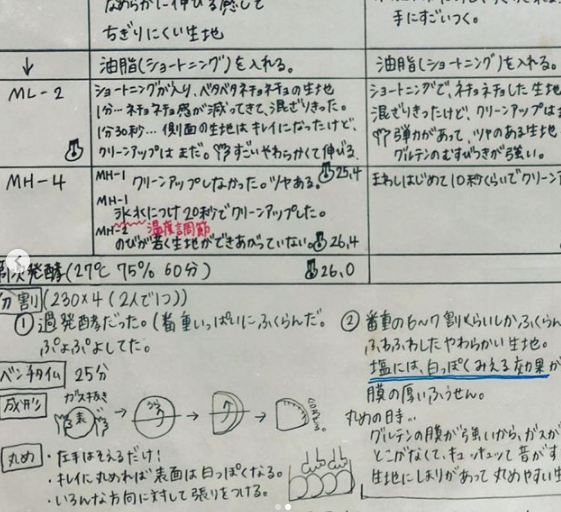 なめらかに伸びる感じで
ちぎりにくい生地
手にすごいつく。
↓
油脂(ショートニング)を入れる。
油脂(ショートニング)を入れる
ML-2
ショートニングが入り、ベタベタネチョネチョの生地
1分…ネチョネチョ感が減ってきて、混ざりきった。
1分30秒…側面の生地はキレイになったけど、
クリーンアップはまだ。すごいやわらかくて伸びる。
ショートニングで、ネチョネチョした生地
混ざりきったけど、クリーンアップは
弾力があって、ツヤのある生地
グルテンのむすびつきが強い。
MH-4
MH-1 クリーンアップしなかった。ツヤある。25.4
MH-1
氷水につけ20秒でクリーンアップした。
MH-2 温度調節
のびが若く生地ができあがっていない。26.4
まわしはじめて10秒くらいでクリーンア
次発酵(27℃ 75% 60分)
26.0
分割(230×4(2人で1つ))
① 過発酵だった。(番重いっぱいにふくらんだ。
ぷよぷよしてた。
② 番重の6〜7割くらいしかふくらん
ふわふわしたやわらかい生地。
塩には、白っぽくみえる効果が
膜の厚いふうせん。
ベンチタイム 25分
成形
ガス抜き
表
→ → →
丸めの時…
グルテンの膜が強いから、ガスが
とこがなくて、キュッキュッて音がす
生地にしまりがあって丸めやすい生
丸め
・左手はそえるだけ!
・キレイに丸めれば表面は白っぽくなる。
・いろんな方向に対して張りをつける。